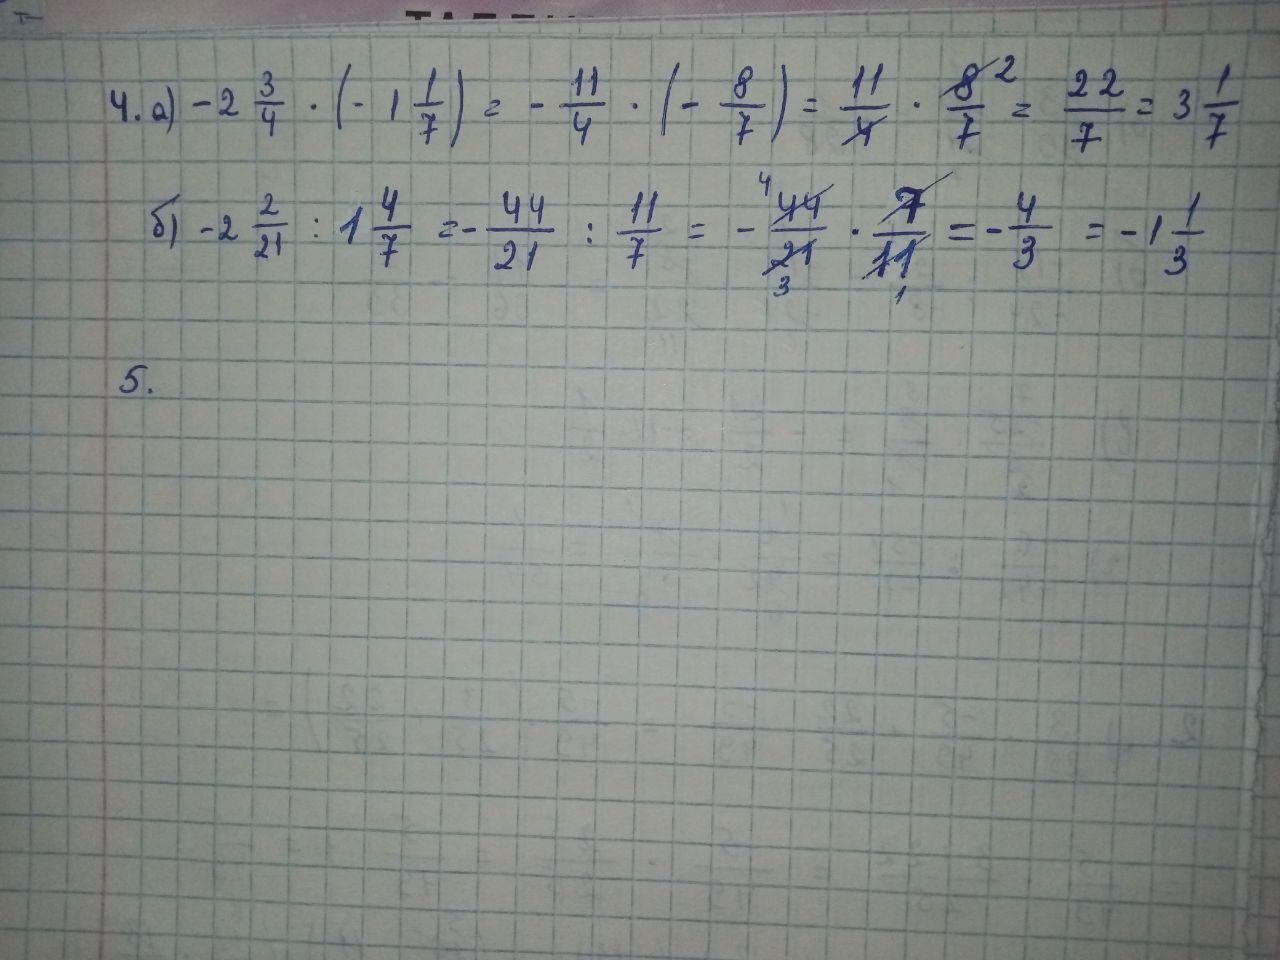 4. а) -2 3/4 · (-1 1/7) = - 11/4 · (- 8/7) = 11/4 · 8/7 2 = 22/7 = 3 1/7
б) -2 2/21 : 1 4/7 = - 44/21 : 11/7 = - 4 44/21 3 · 7/11 1 = - 4/3 = -1 1/3
5.